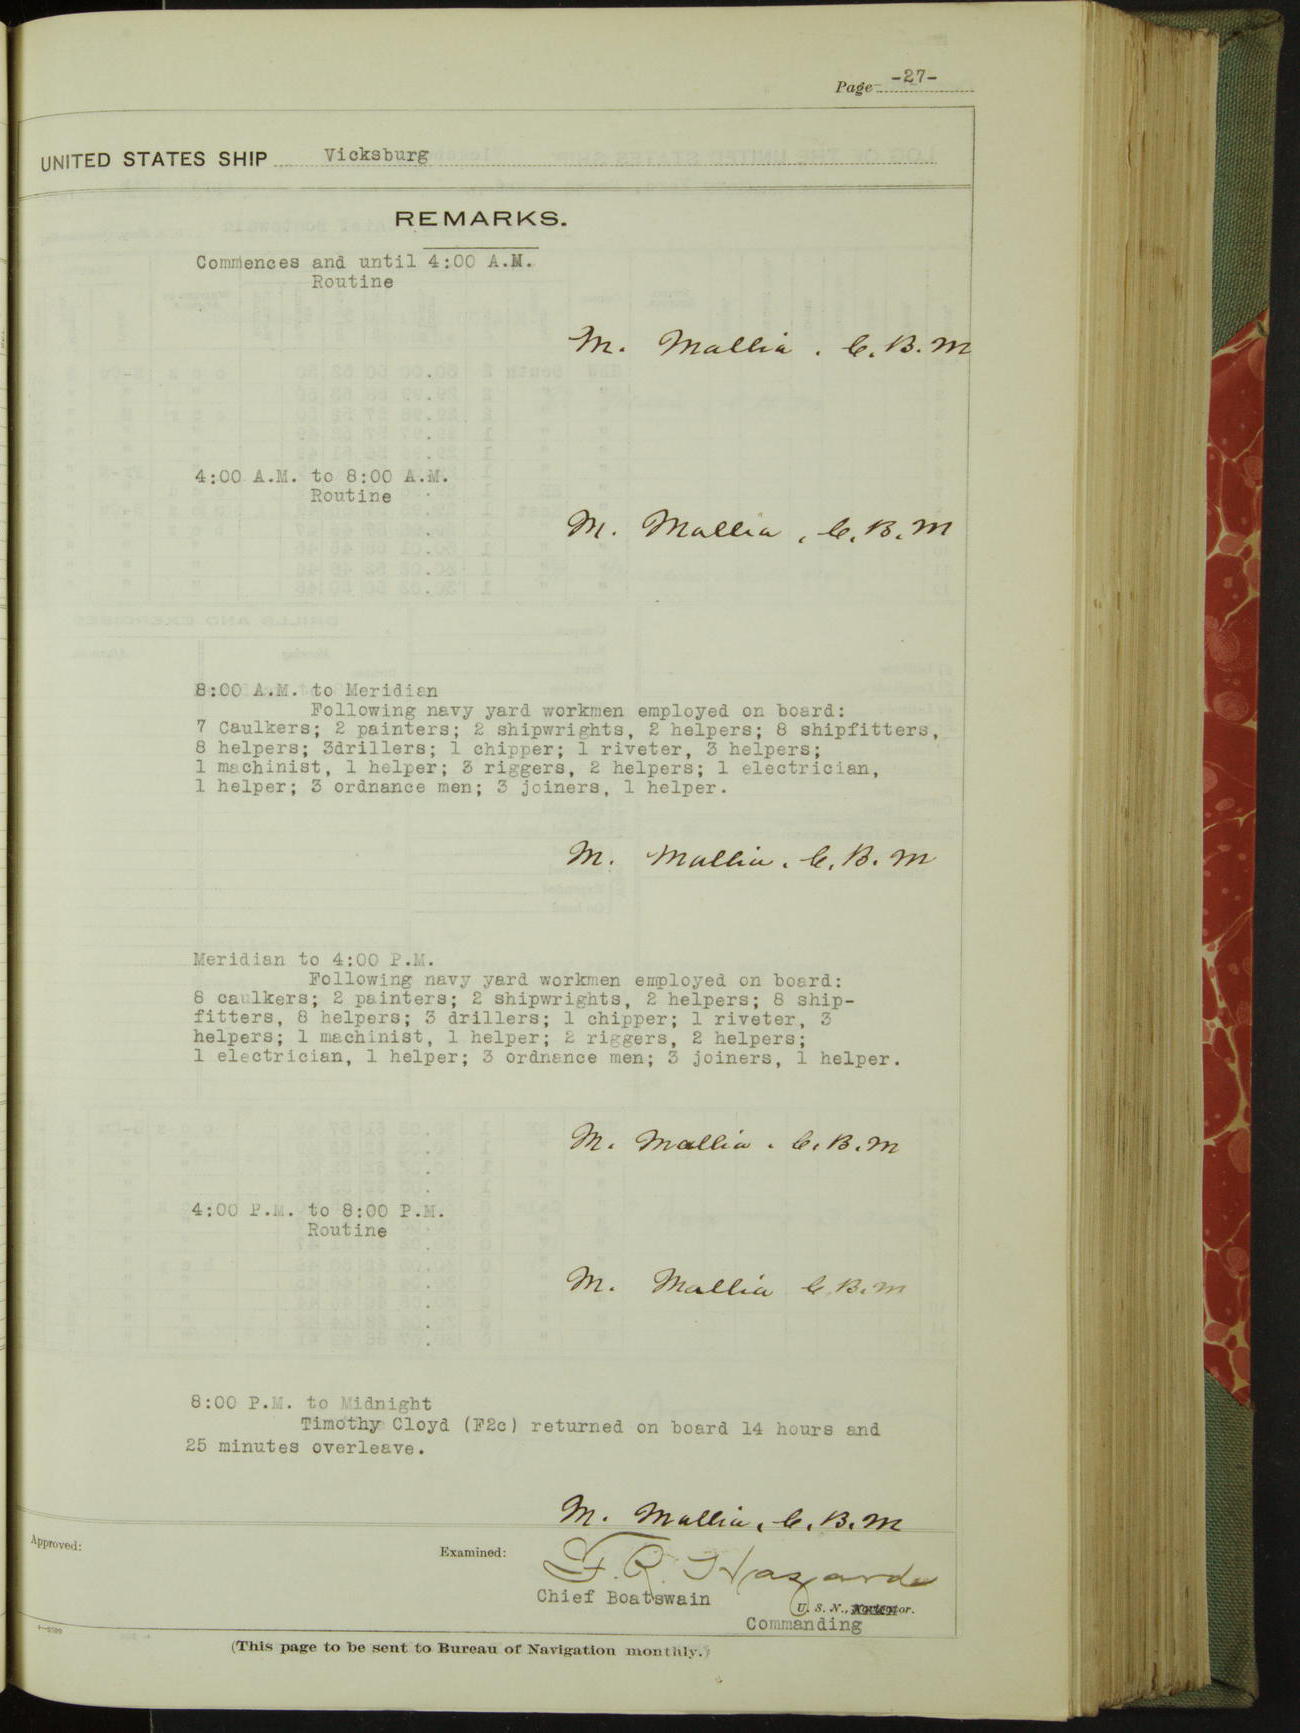 Page -27-
UNITED STATES SHIP Vicksburg
REMARKS.
Commences and until 4:00 A.M.
Routine
M. Mallia. C.B.M
4:00 A.M. to 8:00 A.M.
Routine
M. Mallia, C.B.M
8:00 A.M. to Meridian
Following navy yard workmen employed on board:
7 Caulkers; 2 painters; 2 shipwrights, 2 helpers; 8 shipfitters,
8 helpers; 3drillers; 1 chipper; 1 riveter, 3 helpers;
1 machinist, 1 helper; 3 riggers, 2 helpers; 1 electrician,
1 helper; 3 ordnance men; 3 joiners, 1 helper.
M. Mallia. C.B.M
Meridian to 4:00 P.M.
Following navy yard workmen employed on board:
8 caulkers; 2 painters; 2 shipwrights, 2 helpers; 8 ship-
fitters, 8 helpers; 3 drillers; 1 chipper; 1 riveter, 3
helpers; 1 machinist, 1 helper; 2 riggers, 2 helpers;
1 electrician, 1 helper; 3 ordnance men; 3 joiners, 1 helper.
M. Mallia. C.B.M
4:00 P.M. to 8:00 P.M.
Routine
M. Mallia C.B.M
8:00 P.M. to Midnight
Timothy Cloyd (F2c) returned on board 14 hours and
25 minutes overleave.
M. Mallia, C.B.M
Approved:
Examined:
F.R. Hazard
Chief Boatswain
U. S. N.,
Commanding
(This page to be sent to Bureau of Navigation monthly.)